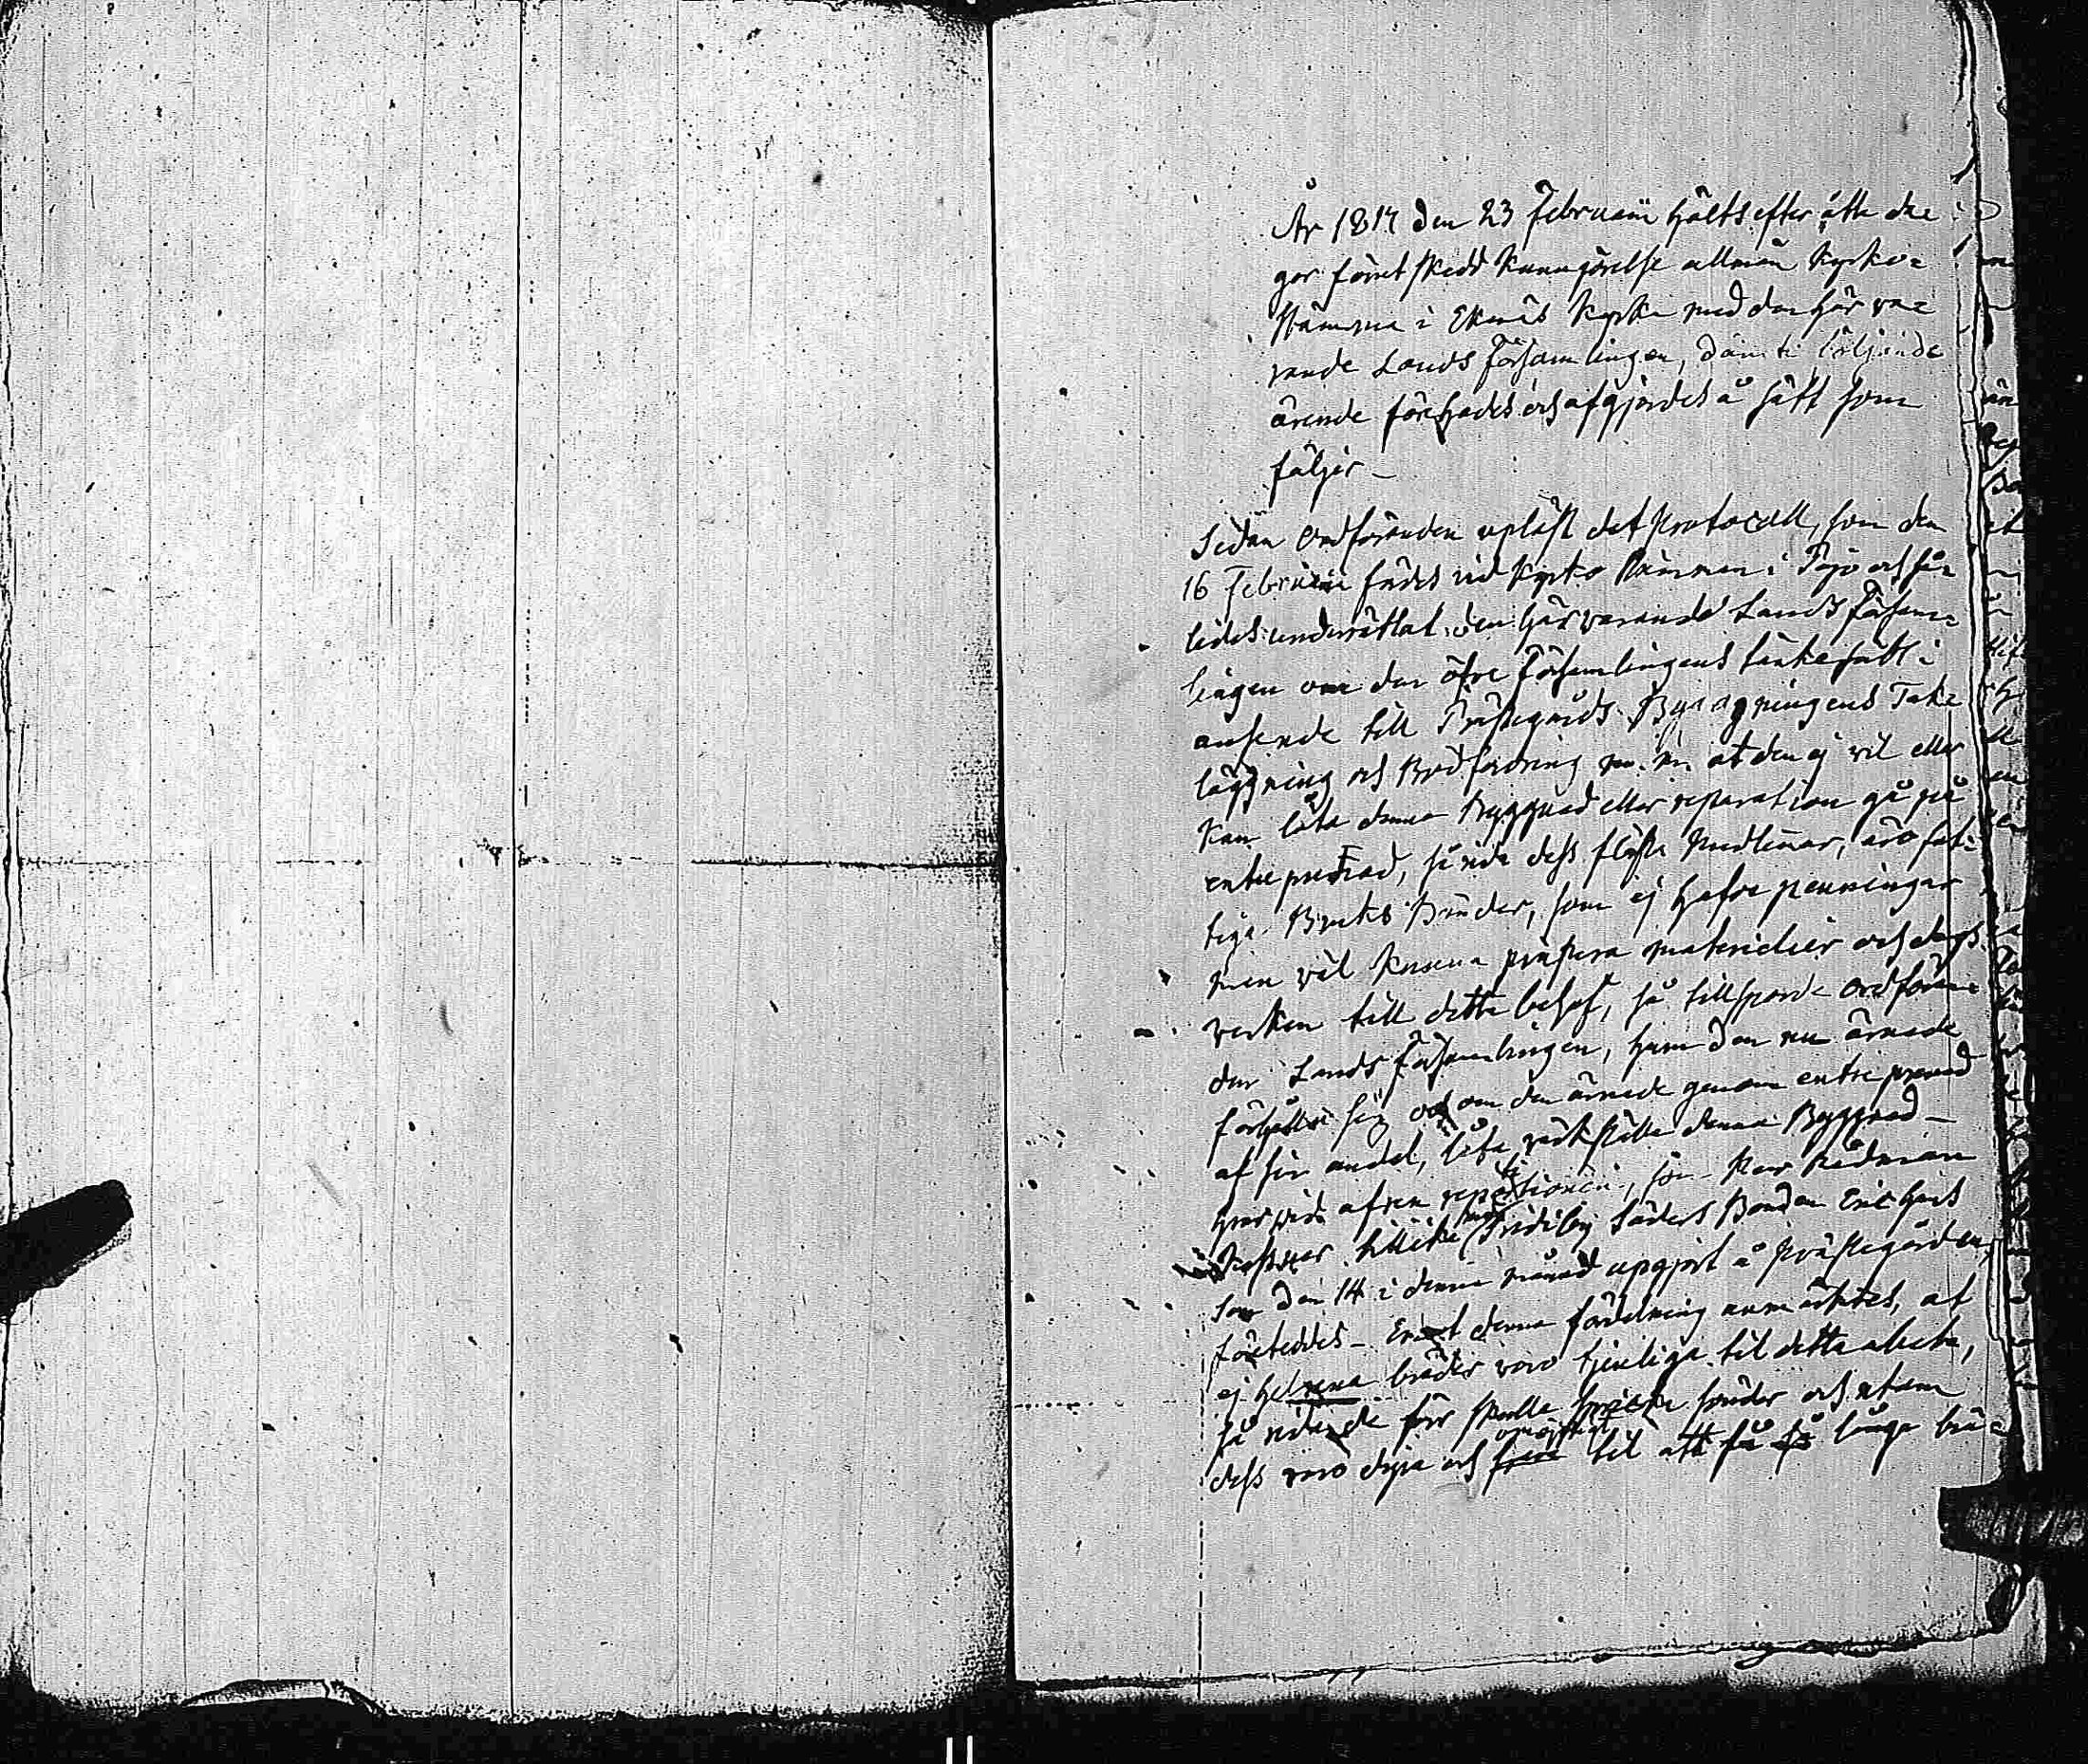 År 1817 den 23 Februarii hålts efter åtta da=
gar förut skedd kunngörelse allmän Kyrko=
stämma i Ekenäs Kyrka med den här va=
rande Lands Församlingen, då följande
ärende förehades och afgjordes å sätt som
följer –
Sedan Ordföranden upläst det Protocoll, som den
16 Februarii fördes vid Kyrko Stämman i Pojo och så=
ledes underrättat den här varande Lands Försam=
lingen om den öfre Församlingens tänkesätt i
anseende till Prästegårds Byggningens Tak=
läggning och Brädfordring m. m. at den ej vil eller
kan låta denna Byggnad eller reparation gå på
entreprenad, såvida dess flesta Medlemar, äro fat=
tiga Bruks Bönder, som ej hafva penningar
men väl kunna prästera materialier och dags
verken till detta behof, så tillsporde Ordföran=
den Lands Församlingen, huru den nu ärnade
förhålla sig och om den ärnade genom entreprenad
af sin andel, låta värkställa denna Byggnad –
hvarvid afven repartitionen, som Herr Rådman
tillika med Bonden Eric
som den 14 i denna månad upgjort å Prästegården,
företeddes – Emot denna fördelning anmärktes, at
ej bräder voro tjenliga til detta arbete,
så vida de förr skulle spricka sönder och utom
dess voro dyra och omöjliga til att få så långa brä=